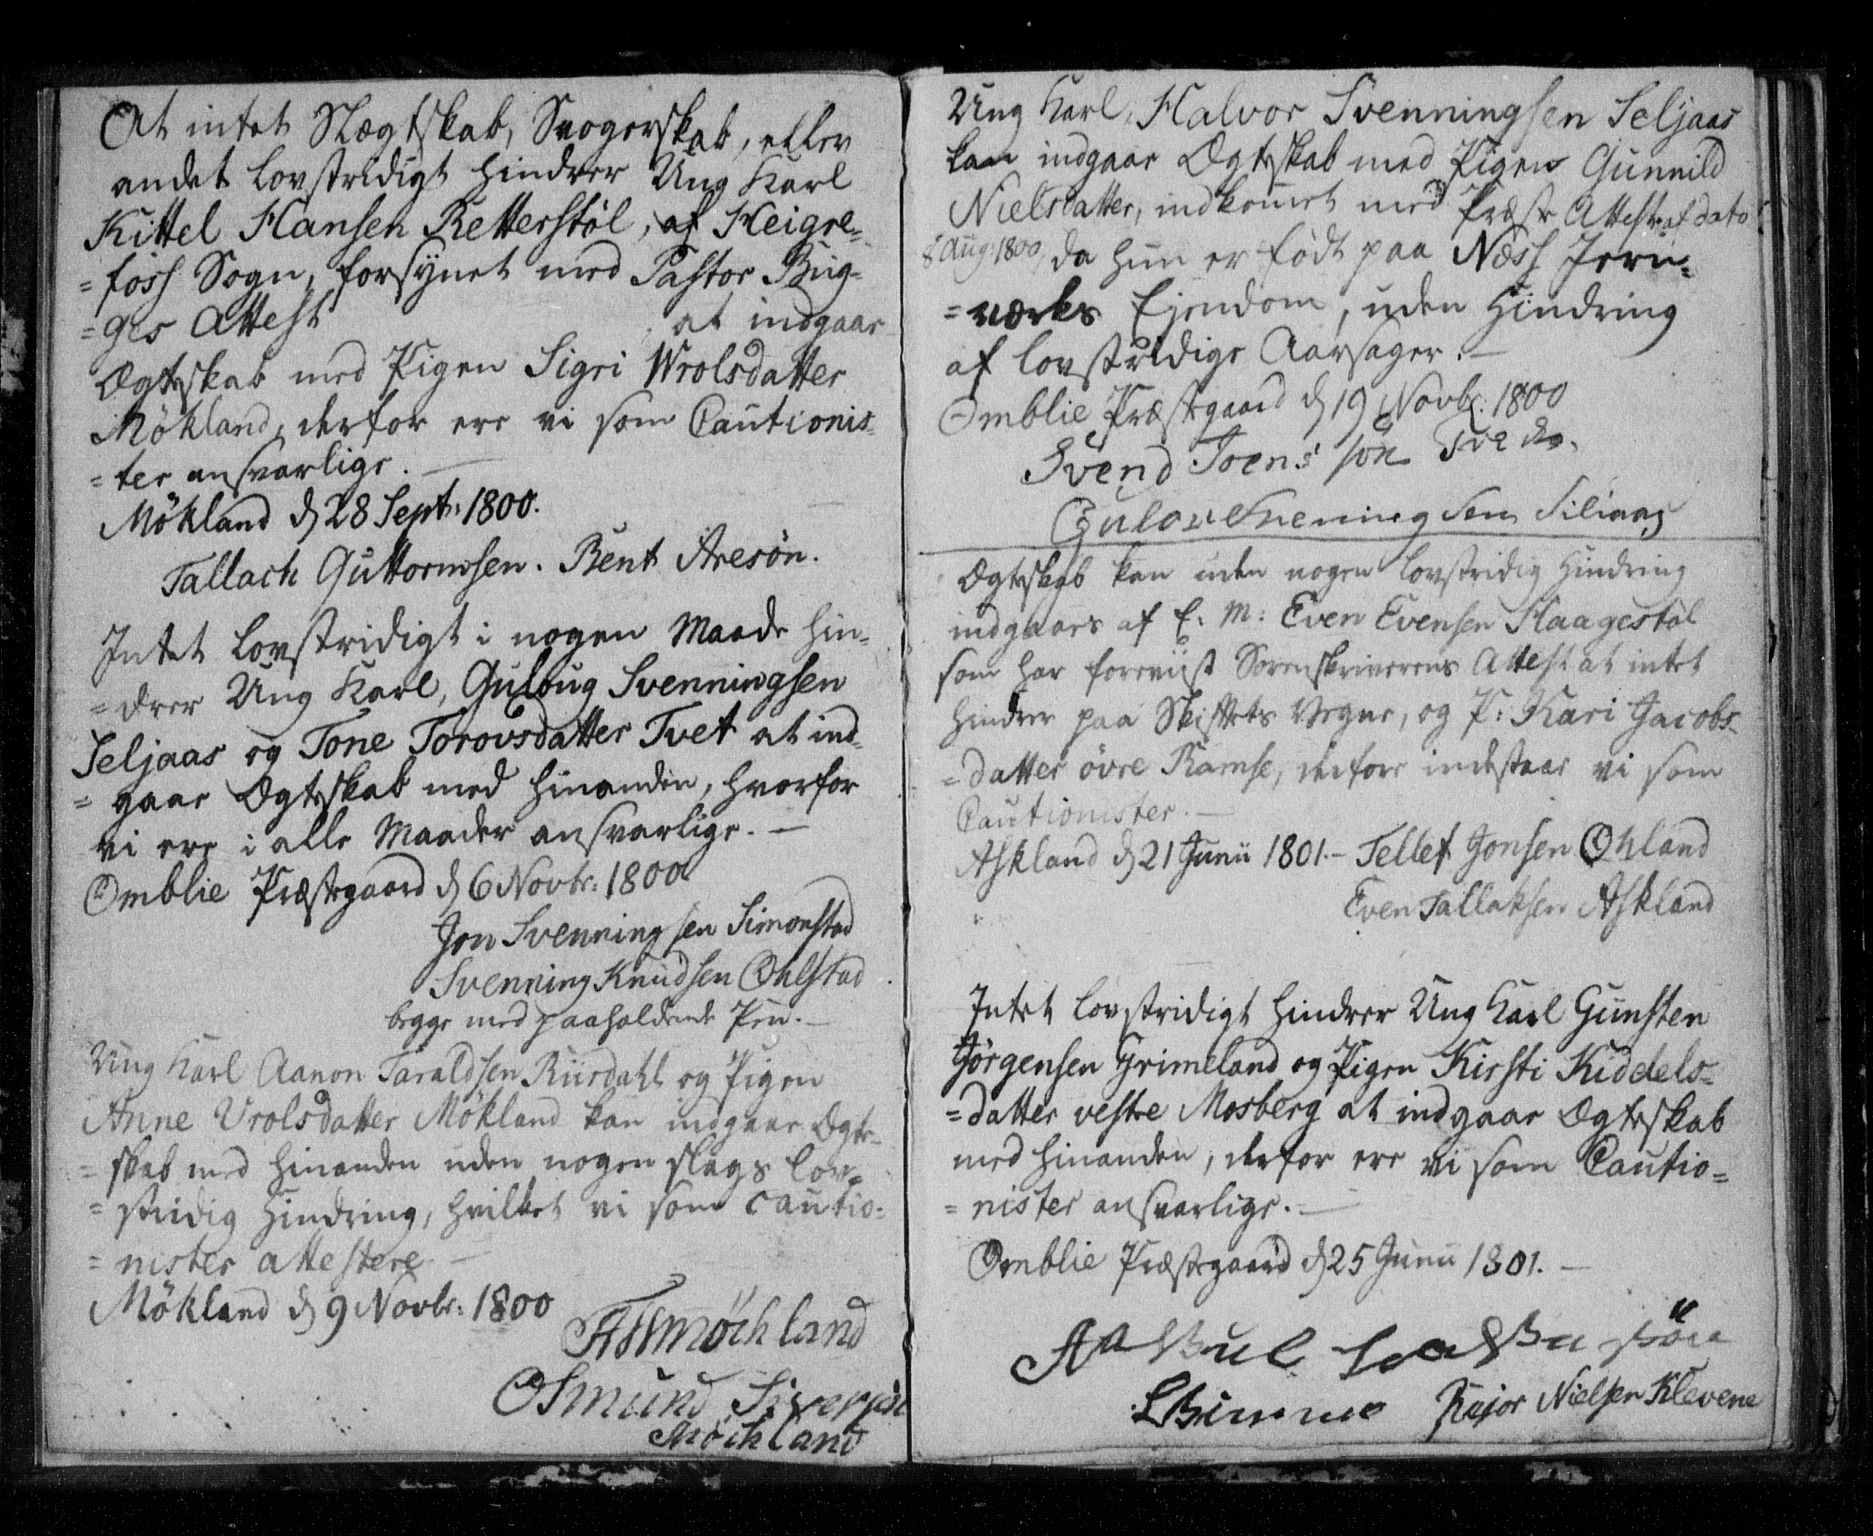 At intet Slægtskab, Svogerskab, eller
andet lovstridigt hindrer Ung Karl
Kittel Hansen Retterstöl, af Heigre-
= foss Sogn, forsynet med Pastor Bug-
= ges Attest at indgaae
Ægteskab med Pigen Sigri Wrolsdatter
Mökland, derfor ere vi som Cautionis-
= ter ansvarlige. —
Mökland d 28 Sept: 1800.
Tallach Guttormsen. Bent Aresön.
Intet lovstridigt i nogen Maade hin-
= drer Ung Karl, Guloug Svenningsen
Seljaas og Tone Torovsdatter Tvet at ind-
= gaae Ægteskab med hinanden, hvorfor
vi ere i alle Maader ansvarlige. —
Omblie Præstegaard d 6 Novbr: 1800
Jon Svenningsen Simonstad
Svenning Knudsen Ohlstad
begge med paaholdende Pen. —
Ung Karl Aanon Taraldsen Riisdahl og Pigen
Anne Vrolsdatter Mökland kan indgaae Ægte-
= skab med hinanden uden nogen slags lov-
= stridig Hindring, hvilket vi som Cautio-
= nister attestere —
Mökland d 9 Novbr: 1800
Möchland
Osmund Siversön
Möchland
Ung Karl, Halvor Svenningsen Seljaas
kan indgaae Ægteskab med Pigen Gunnild
Nielsdatter, indkommet med Præste Attest af dato
8 Aug: 1800, da hun er födt paa Næss Jern-
= værks Ejendom, uden Hindring
af lovstridige Aarsager. —
Omblie Præstegaard d 19 Novbr: 1800
Svend Joens sön Tvede.
Gulov Sveningsen Siliaas
Ægteskab kan uden nogen lovstridig Hindring
indgaaes af E. M: Even Evensen Haagestöl
som har foreviist Sorenskriverens Attest at intet
hindrer paa Skiftets Vegne, og P: Kari Jacobs-
= datter övre Ramse, derfore indestaae vi som
Cautionister. —
Askland d 21 Junii 1801. — Tellef Jonsen Ohland
Even Tallaksen Askland
Intet lovstridigt hindrer Ung Karl Gunsten
Jörgensen Grimeland og Pigen Kirsti Kiddels-
= datter vestre Mosberg at indgaae Ægteskab
med hinanden, derfor ere vi som Cautio-
= nister ansvarlige. —
Omblie Præstegaard d 25 Junii 1801. —
Nielsen Klevene